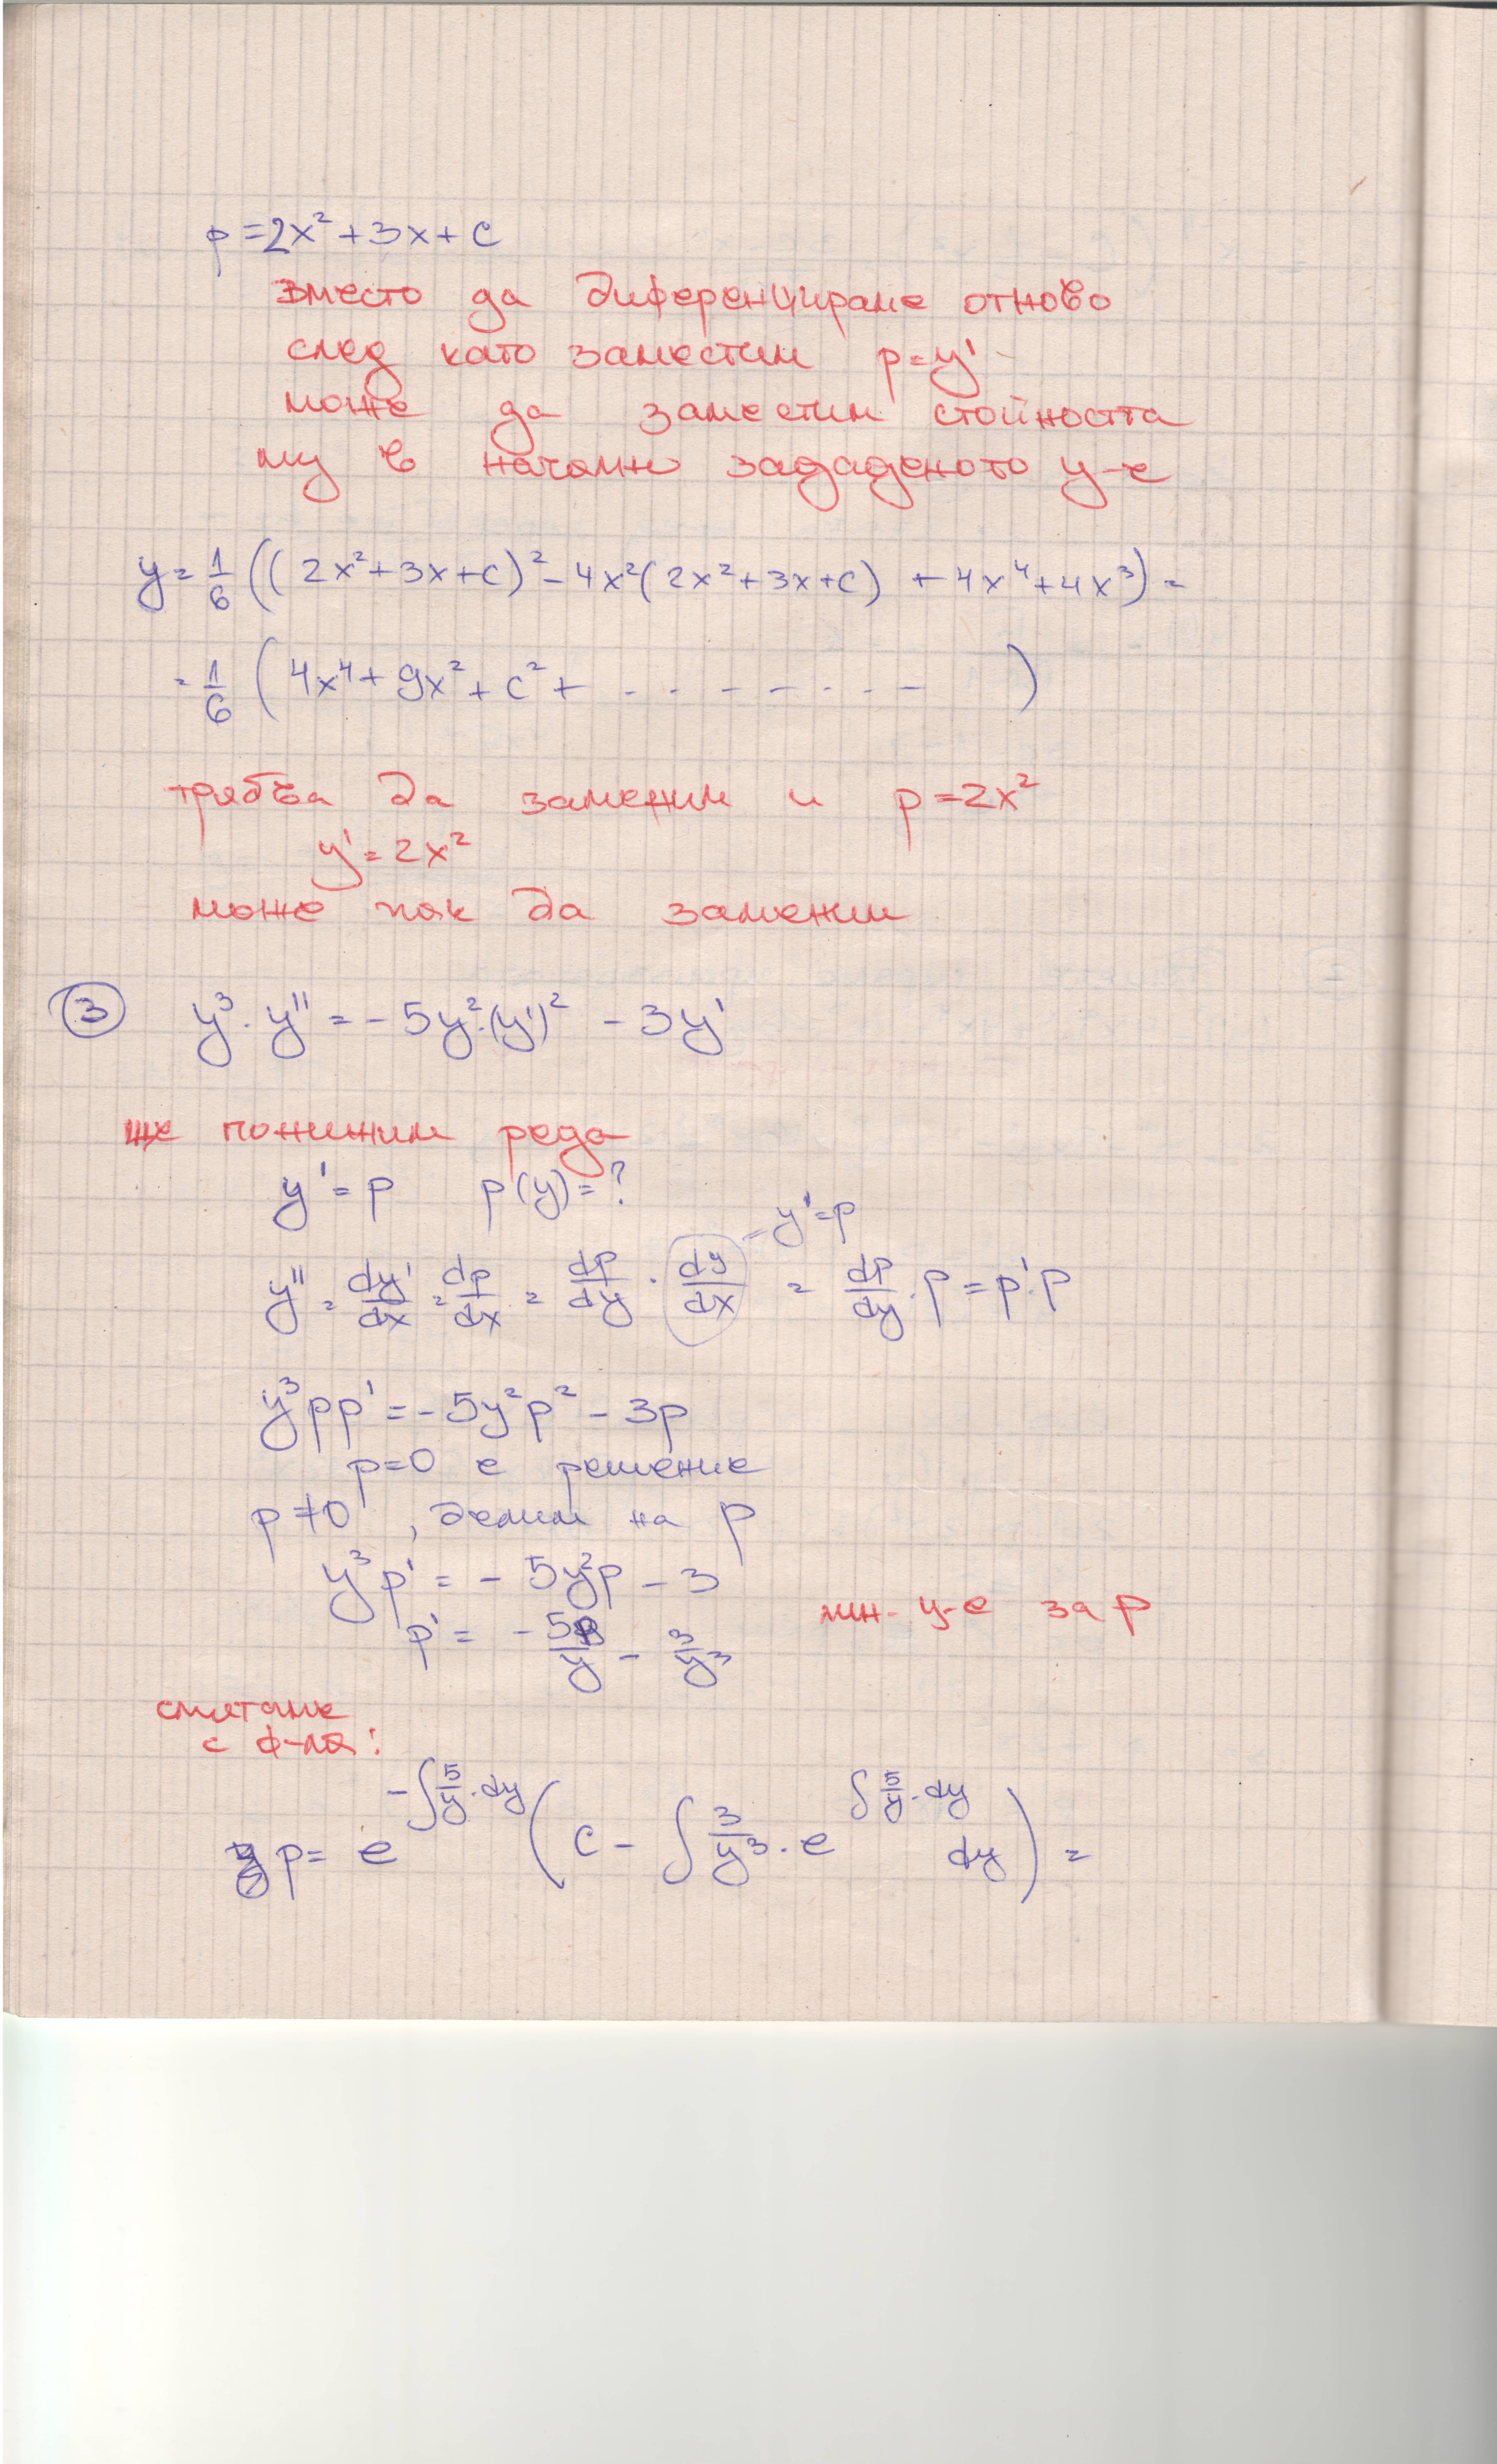 p = 2x² + 3x + c
вместо да диференцираме отново
след като заместим p = y'
може да заместим стойността
му в начално зададеното у-е
y = 1/6 ((2x² + 3x + c)² - 4x²(2x² + 3x + c) + 4x⁴ + 4x³) =
= 1/6 (4x⁴ + 9x² + c² + - - - - - - - - )
трябва да заменим и p = 2x²
y' = 2x²
може пак да заменим
③ y³ . y'' = - 5y².(y')² - 3y'
ще понижим реда
y' = p p(y) = ?
= y' = p
y'' = dy'/dx = dp/dx = dp/dy . dy/dx = dp/dy . p = p'.p
y³pp' = - 5y²p² - 3p
p = 0 е решение
p ≠ 0 , делим на p
y³p' = - 5y²p - 3
p' = - 5p/y - 3/y³ лин. у-е за p
смятаме
с ф-ла:
p = e^(-∫ 5/y . dy) (c - ∫ 3/y³ . e^(∫ 5/y . dy) dy) =